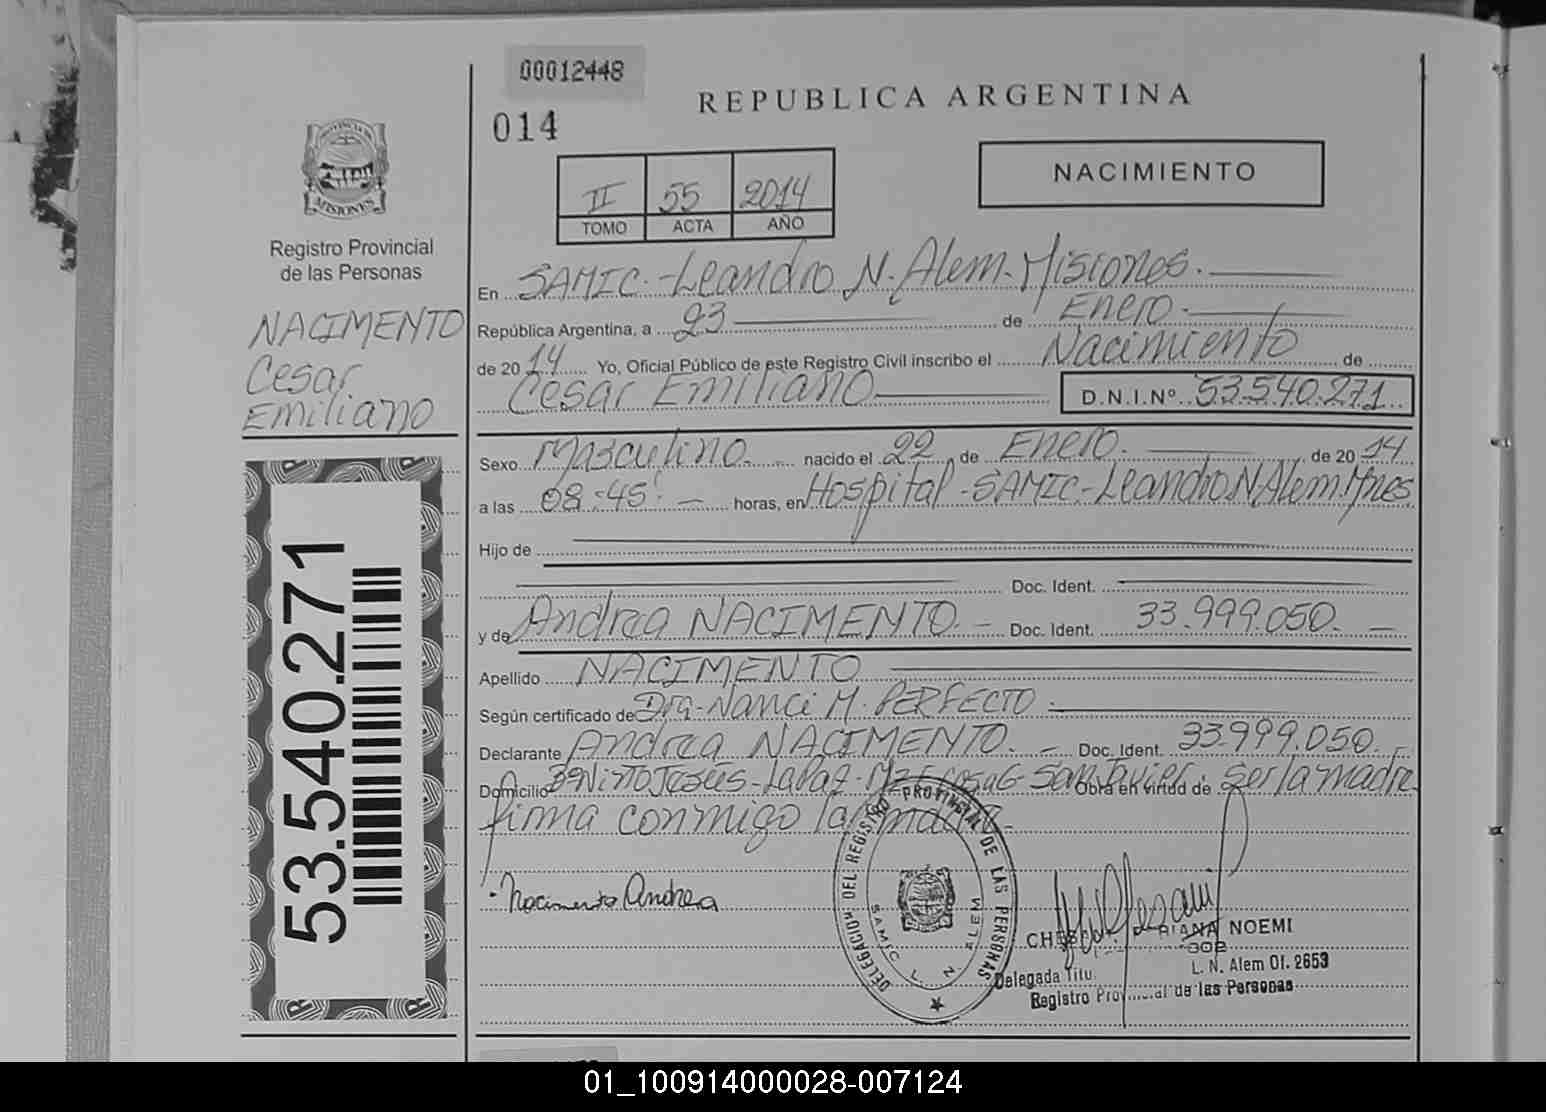 00012448
014
REPUBLICA ARGENTINA
NACIMIENTO
II 55 2014
TOMO ACTA AÑO
PROVINCIA DE
MISIONES
Registro Provincial
de las Personas
NACIMENTO
Cesar
Emiliano
53.540.271
En SAMIC.-Leandro N. Alem-Misiones.
República Argentina, a 23 de Enero.
de 2014 Yo, Oficial Público de este Registro Civil inscribo el Nacimiento de
Cesar Emiliano D.N.I.Nº 53.540.271
Sexo Masculino. nacido el 22 de Enero. de 2014
a las 08:45' horas, en Hospital-SAMIC-Leandro N Alem. Mnes
Hijo de
Doc. Ident.
y de Andrea NACIMENTO.- Doc. Ident. 33.999.050.-
Apellido NACIMENTO
Según certificado de Dra.-Nanci M. PERFECTO.
Declarante Andrea NACIMENTO.- Doc. Ident. 33.999.050.
Domicilio Bº Niño Jesús-La Paz-Mz F casa 6-San Javier. Obra en virtud de Ser la madre
firma conmigo la madre.-
Nacimento Andrea
DELEGACION DEL REGISTRO PROVINCIAL DE LAS PERSONAS
SAMIC L. N. ALEM
NOEMI
302
Delegada Titu.
L. N. Alem Of. 2653
Registro Provincial de las Personas
01_100914000028-007124